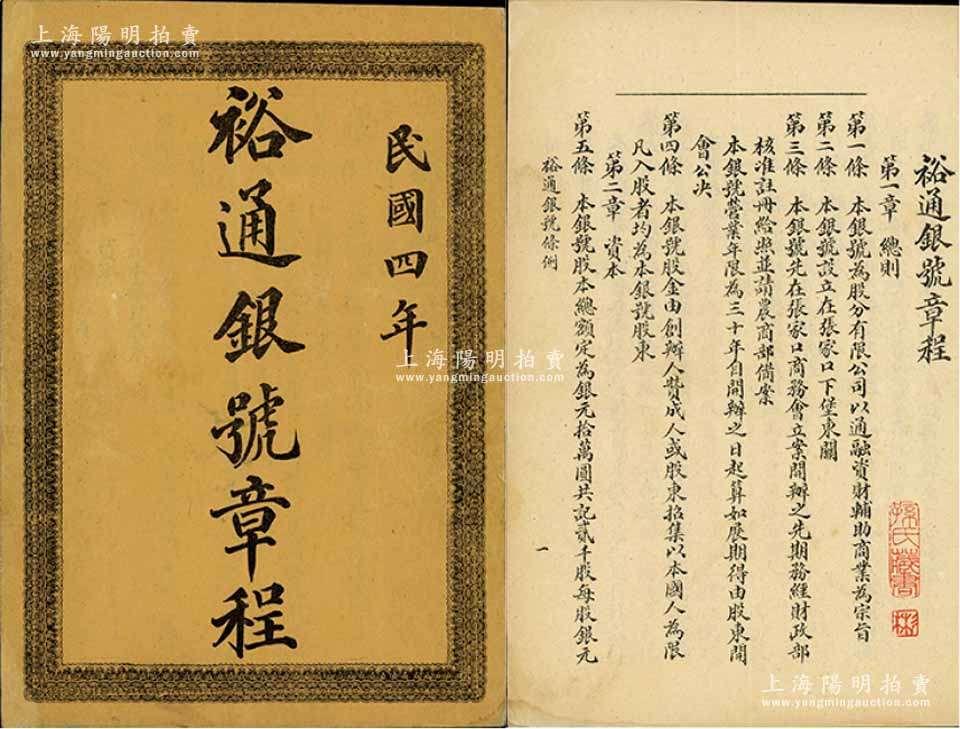 上海陽明拍賣
www.yangmingauction.com
民國四年
裕通銀號章程
上海陽明拍賣
www.yangmingauction.com
裕通銀號章程
第一章 總則
第一條 本銀號為股分有限公司以通融資財輔助商業為宗旨
第二條 本銀號設立在張家口下堡東關
第三條 本銀號先在張家口商務會立案開辦之先期務經財政部
核准註冊給照並請農商部備案
本銀號營業年限為三十年自開辦之日起算如展期得由股東開
會公決
第四條 本銀號股金由創辦人贊成人或股東招集以本國人為限
凡入股者均為本銀號股東
第二章 資本
第五條 本銀號股本總額定為銀元拾萬圓共記貳千股每股銀元
裕通銀號條例
一
孫氏藏書
彬
上海陽明拍賣
www.yangmingauction.com